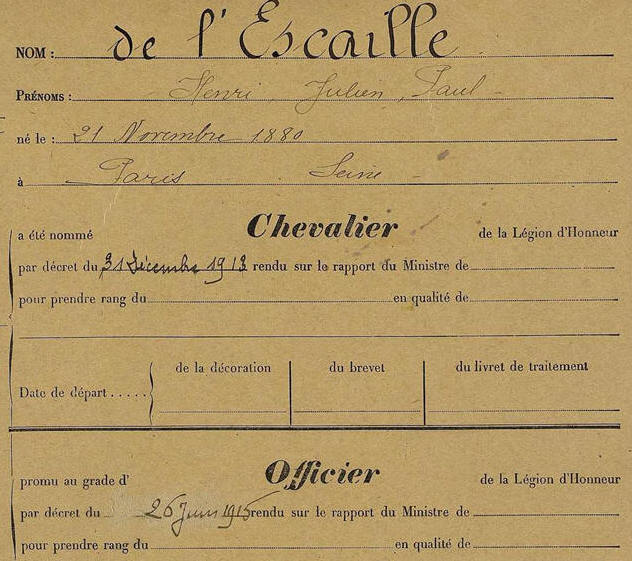 NOM : de l'Escaille
PRÉNOMS : Henri, Julien, Paul -
né le : 21 Novembre 1880
à Paris Seine -
a été nommé Chevalier de la Légion d'Honneur
par décret du 31 Décembre 1913 rendu sur le rapport du Ministre de
pour prendre rang du en qualité de
de la décoration du brevet du livret de traitement
Date de départ .....
promu au grade d' Officier de la Légion d'Honneur
par décret du 26 Juin 1915 rendu sur le rapport du Ministre de
pour prendre rang du en qualité de